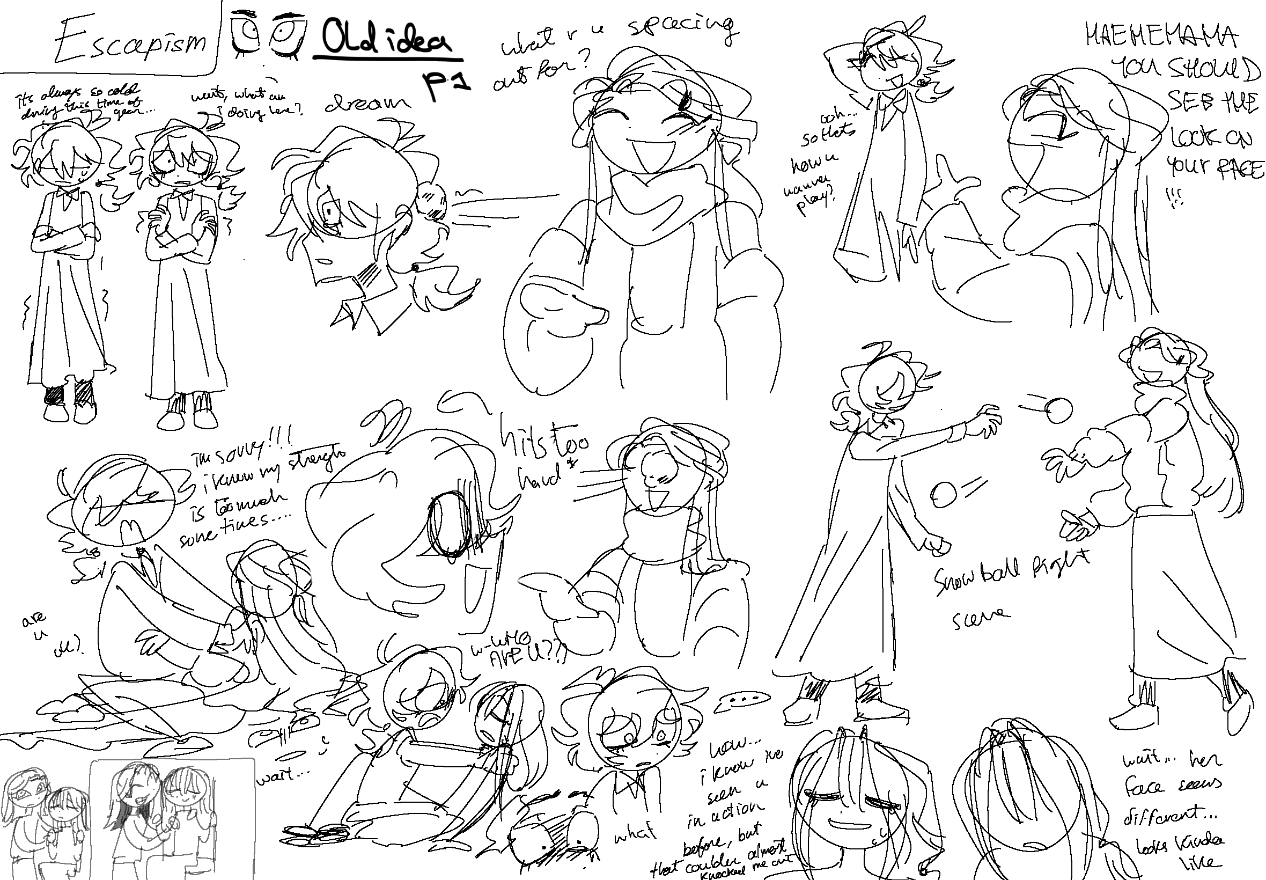 Escapism
Old idea
P1
its always so cold
during this time of
year...
wait, what am
i doing here?
dream
what r u spacing
out for?
ooh...
so thats
how u
wanna
play?
HAEMEMAMA
YOU SHOULD
SEE THE
LOOK ON
YOUR FACE
!!!
im sorry!!!
i know my strength
is too much
sometimes....
are
u
ok?
hits too
hard*
Snowball fight
scene
wait...
w-who
ARE U??
what
...
how...
i know ive
seen u
in action
before, but
that couldve almost
knocked me out
wait... her
face seems
different...
looks kinda
like